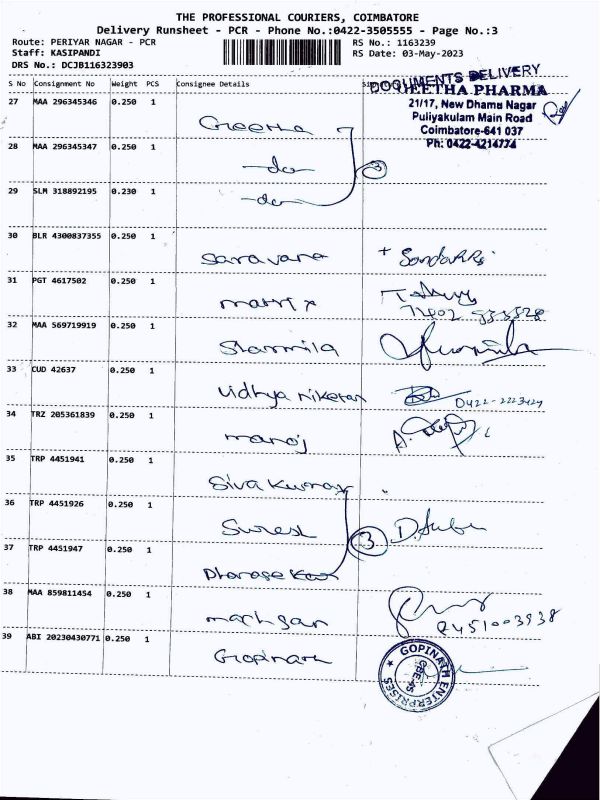 THE PROFESSIONAL COURIERS, COIMBATORE
Delivery Runsheet - PCR - Phone No.:0422-3505555 - Page No.:3
Route: PERIYAR NAGAR - PCR
Staff: KASIPANDI
DRS No.: DCJB116323903
RS No.: 1163239
RS Date: 03-May-2023
S No Consignment No Weight PCS Consignee Details
DOCUMENTS DELIVERY
GEETHA PHARMA
21/17, New Dhamu Nagar
Puliyakulam Main Road
Coimbatore-641 037
Ph: 0422-4214774
27 MAA 296345346 0.250 1 Geetha
28 MAA 296345347 0.250 1 -do- 3
29 SLM 318892195 0.230 1 -do-
30 BLR 4300837355 0.250 1 Saravana
31 PGT 4617502 0.250 1 matrix
32 MAA 569719919 0.250 1 Sharmila
33 CUD 42637 0.250 1 Vidhya niketan 0422-2223424
34 TRZ 205361839 0.250 1 manoj
35 TRP 4451941 0.250 1 Siva Kumar
36 TRP 4451926 0.250 1 Suresh 3
37 TRP 4451947 0.250 1
38 MAA 859811454 0.250 1 9451003938
39 ABI 20230430771 0.250 1 Gopinath
GOPINATH ENTERPRISES
CBE-45